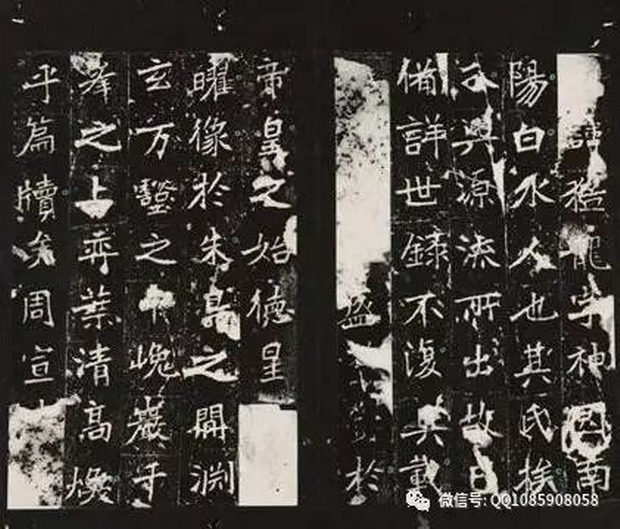 諱猛龍字神囧南
陽白水人也其氏族
興源流所出故已
備詳世錄不復具載
盛於
帝皇之始德星
曜像於朱鳥之閒淵
玄万壑之中巍巖千
峯之上奕葉清高煥
乎篇牘矣周宣
微信号: QQ1085908058